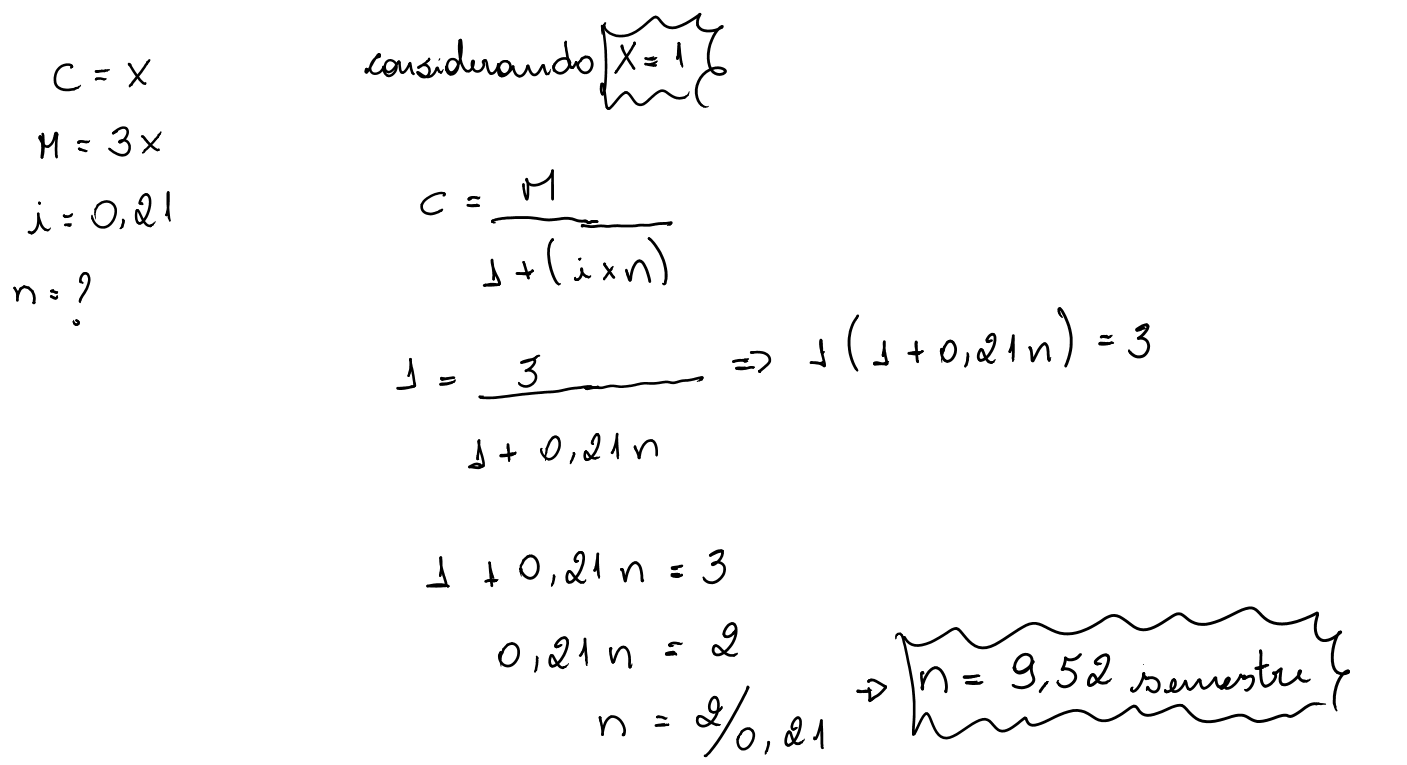 C = x
M = 3x
i = 0,21
n = ?
considerando X = 1
C = M
1 + (i x n)
1 = 3 => 1(1 + 0,21n) = 3
1 + 0,21n
1 + 0,21n = 3
0,21n = 2
n = 2/0,21 → n = 9,52 semestre